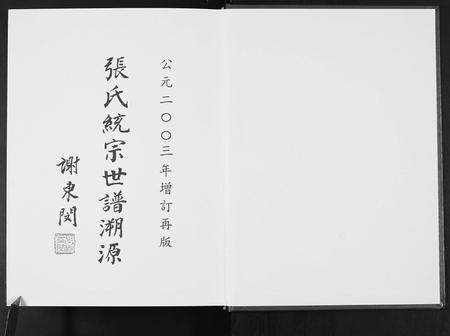 公元二〇〇三年增訂再版
張氏統宗世譜溯源
謝東閔